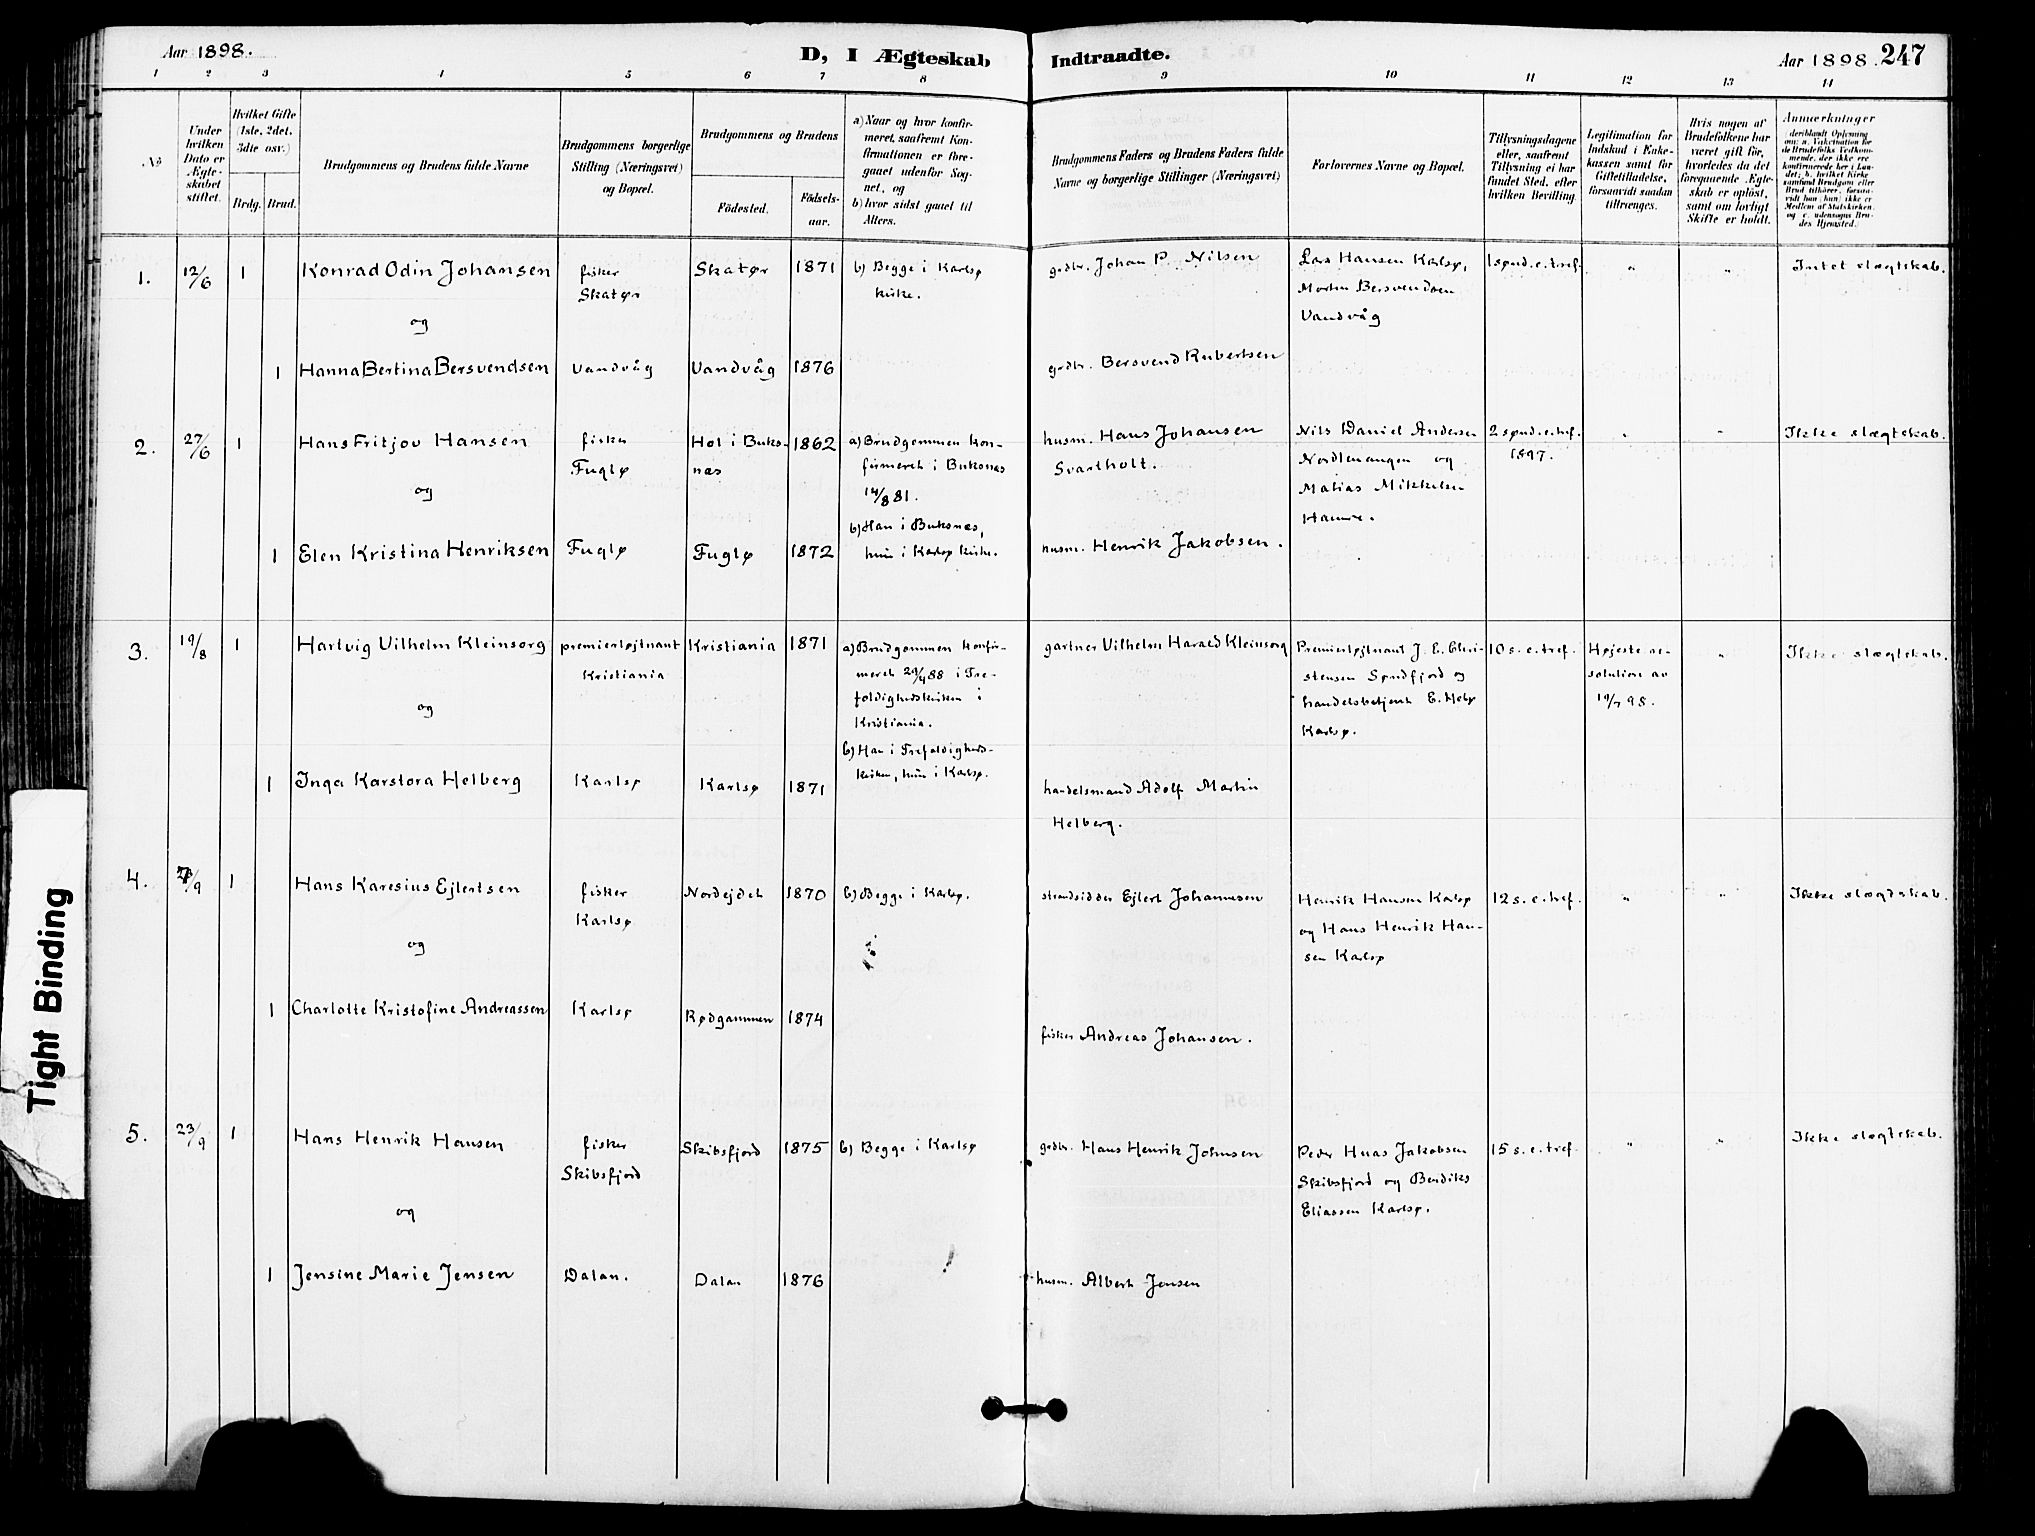 Aar 1898.
D, I Ægteskab Indtraadte.
Aar 1898. 247
1 2 3 4 5 6 7 8 9 10 11 12 13 14
No
Under
hvilken
Dato er
Ægte-
skabet
stiftet.
Hvilket Gifte
(1ste, 2det,
3die osv.)
Brdg. Brud.
Brudgommens og Brudens fulde Navne
Brudgommens borgerlige
Stilling (Næringsvei)
og Bopæl.
Brudgommens og Brudens
Födested.
Födsels-
aar.
a) Naar og hvor konfir-
meret, saafremt Kon-
firmationen er fore-
gaaet udenfor Sog-
net, og
b) hvor sidst gaaet til
Alters.
Brudgommens Faders og Brudens Faders fulde
Navne og borgerlige Stillinger (Næringsvei)
Forlovernes Navne og Bopæl.
Tillysningsdagene
eller, saafremt
Tillysning ei har
fundet Sted, efter
hvilken Bevilling.
Legitimation for
Indskud i Enke-
kassen samt for
Giftetilladelse,
forsaavidt saadan
tiltrænges.
Hvis nogen af
Brudefolkene har
været gift för,
hvorledes da det
foregaaende Ægte-
skab er oplöst,
samt om lovligt
Skifte er holdt.
Anmærkninger
(deriblandt Oplysning
om: a. Vakcination for
de Brudefolks Vedkom-
mende, der ikke ere
konfirmerede her i Lan-
det; b. hvilket Kirke-
samfund Brudgom eller
Brud tilhörer, forsaa-
vidt han (hun) ikke er
Medlem af Statskirken,
og c. udensogns Bru-
des Hjemsted.)
1. 12/6 1 Konrad Odin Johansen
fisker
Skatør
Skatør 1871
b) Begge i Karlsø
kirke.
grdbr. Johan P. Nilsen
Lars Hansen Karlsø,
Morten Bersvendsen
Vandvåg
1 sønd. e. tref. " "
Intet slægtskab.
og
1 Hanna Bertina Bersvendsen
Vandvåg Vandvåg 1876
grdbr. Bersvend Rubertsen
2. 27/6 1 Hans Fritjov Hansen
fisker
Fuglø
Hol i Buks-
næs
1862
a) Brudgommen kon-
firmeret i Buksnæs
14/8 81.
b) Han i Buksnæs,
hun i Karlsø kirke.
husm. Hans Johansen
Svartholt.
Nils Daniel Andersen
Nordlenangen og
Matias Mikkelsen
Hamre.
2 sønd. e. tref.
1897.
" "
Ikke slægtskab.
og
1 Elen Kristina Henriksen
Fuglø Fuglø 1872
husm. Henrik Jakobsen.
3. 19/8 1 Hartvig Vilhelm Kleinsorg
premierløjtnant
Kristiania
Kristiania 1871
a) Brudgommen konfir-
meret 29/4 88 i Tre-
foldighedskirken i
Kristiania.
b) Han i Trefoldigheds-
kirken, hun i Karlsø.
gartner Vilhelm Harald Kleinsorg
Premierløjtnant J. E. Chri-
stensen Søndfjord og
handelsbetjent E. Hebø
Karlsø.
10 s. e. tref.
Højeste re-
solution av
19/7 98.
"
Ikke slægtskab.
og
1 Inga Karstora Helberg
Karlsø Karlsø 1871
handelsmand Adolf Martin
Helberg.
4. 1 Hans Karesius Ejlertsen
fisker
Karlsø
Nordejdet 1870
b) Begge i Karlsø.
strandsidder Ejlert Johannesen
Henrik Hansen Karlsø
og Hans Henrik Han-
sen Karlsø
12 s. e. tref. " "
Ikke slægtskab.
og
1 Charlotte Kristofine Andreassen
Karlsø Rødgammen 1874
fisker Andreas Johansen.
5. 23/9 1 Hans Henrik Hansen
fisker
Skibsfjord
Skibsfjord 1875
b) Begge i Karlsø
grdbr. Hans Henrik Johnsen
Peder Huas Jakobsen
Skibsfjord og Bendiks
Eliassen Karlsø.
15 s. e. tref. " "
Ikke slægtskab.
og
1 Jensine Marie Jensen
Dalan. Dalan 1876
husm. Albert Jensen
Tight Binding